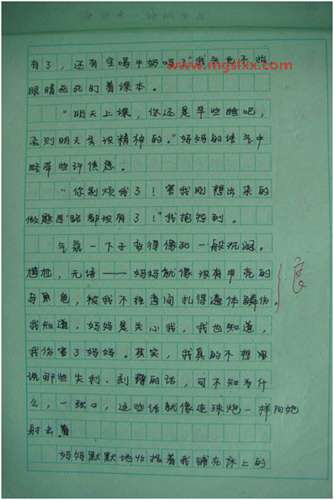 www.mgslxx.com
有了，还有生喝牛奶吗？"我头也不抬
眼睛死死的看课本。
"明天上课，你还是早些睡吧，
否则明天会没精神的。"妈妈的语气中
略带些许倦意。
"你别烦我了！害我刚想出来的
做题思路都没有了！"我抱怨到。
气氛一下子变得像和一般沉闷。
尴尬，无语——妈妈就像没有甲壳的
乌龟，被我不经意间扎得遍体鳞伤。
我知道，妈妈是关心我，我也知道，
我伤害了妈妈。其实，我真的不想用
说那些尖利、刻薄的话，可不知为什
么，一张口，这些话就像连珠炮一样向她
射去
妈妈默默地收拾着我铺在床上的